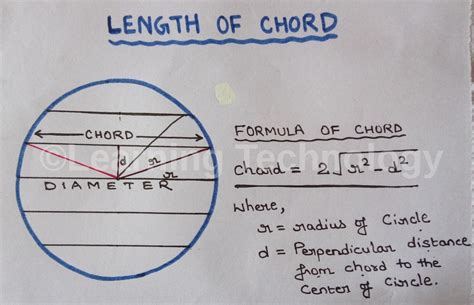 LENGTH OF CHORD
CHORD
d
r
r
DIAMETER
©Learning Technology
FORMULA OF CHORD
chord = 2√r²-d²
Where,
r = radius of Circle
d = Perpendicular distance
from chord to the
Center of Circle.